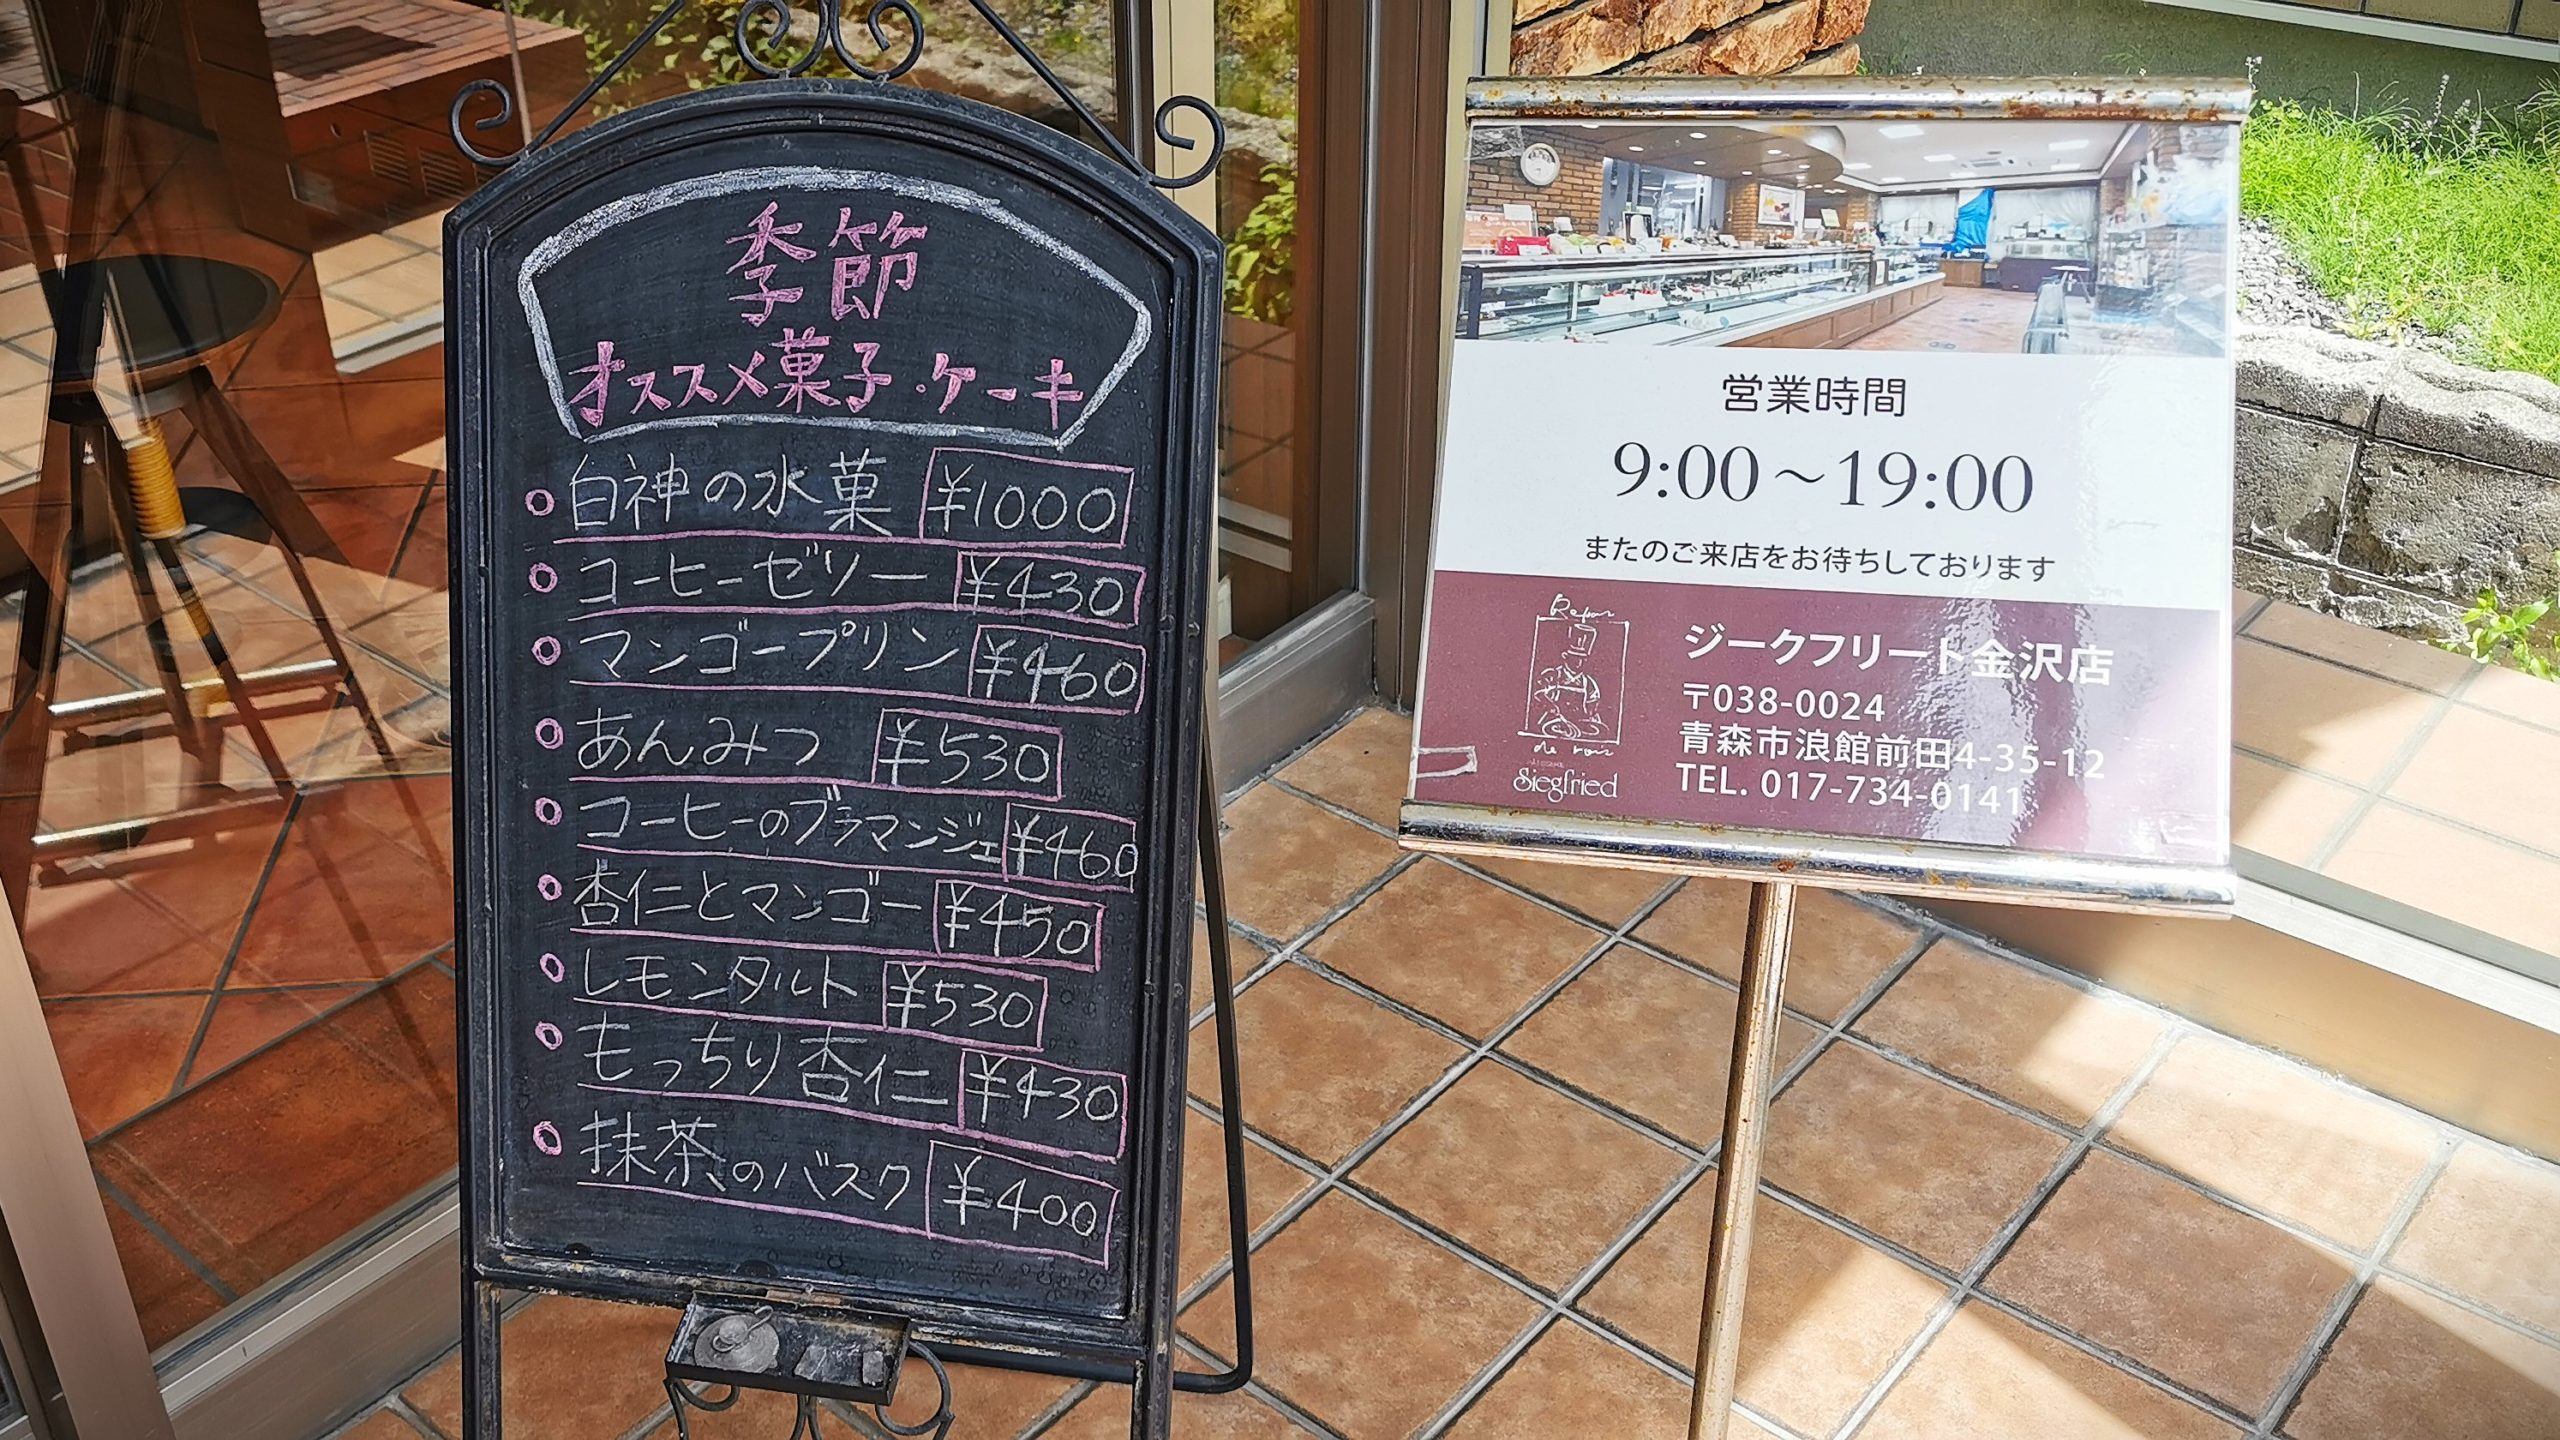 季節
オススメ菓子・ケーキ
白神の水菓 ¥1000
コーヒーゼリー ¥430
マンゴープリン ¥460
あんみつ ¥530
コーヒーのブラマンジェ ¥460
杏仁とマンゴー ¥450
レモンタルト ¥530
もっちり杏仁 ¥430
抹茶のバスク ¥400
営業時間
9:00～19:00
またのご来店をお待ちしております
ジークフリート金沢店
〒038-0024
青森市浪館前田4-35-12
TEL. 017-734-0141
Siegfried